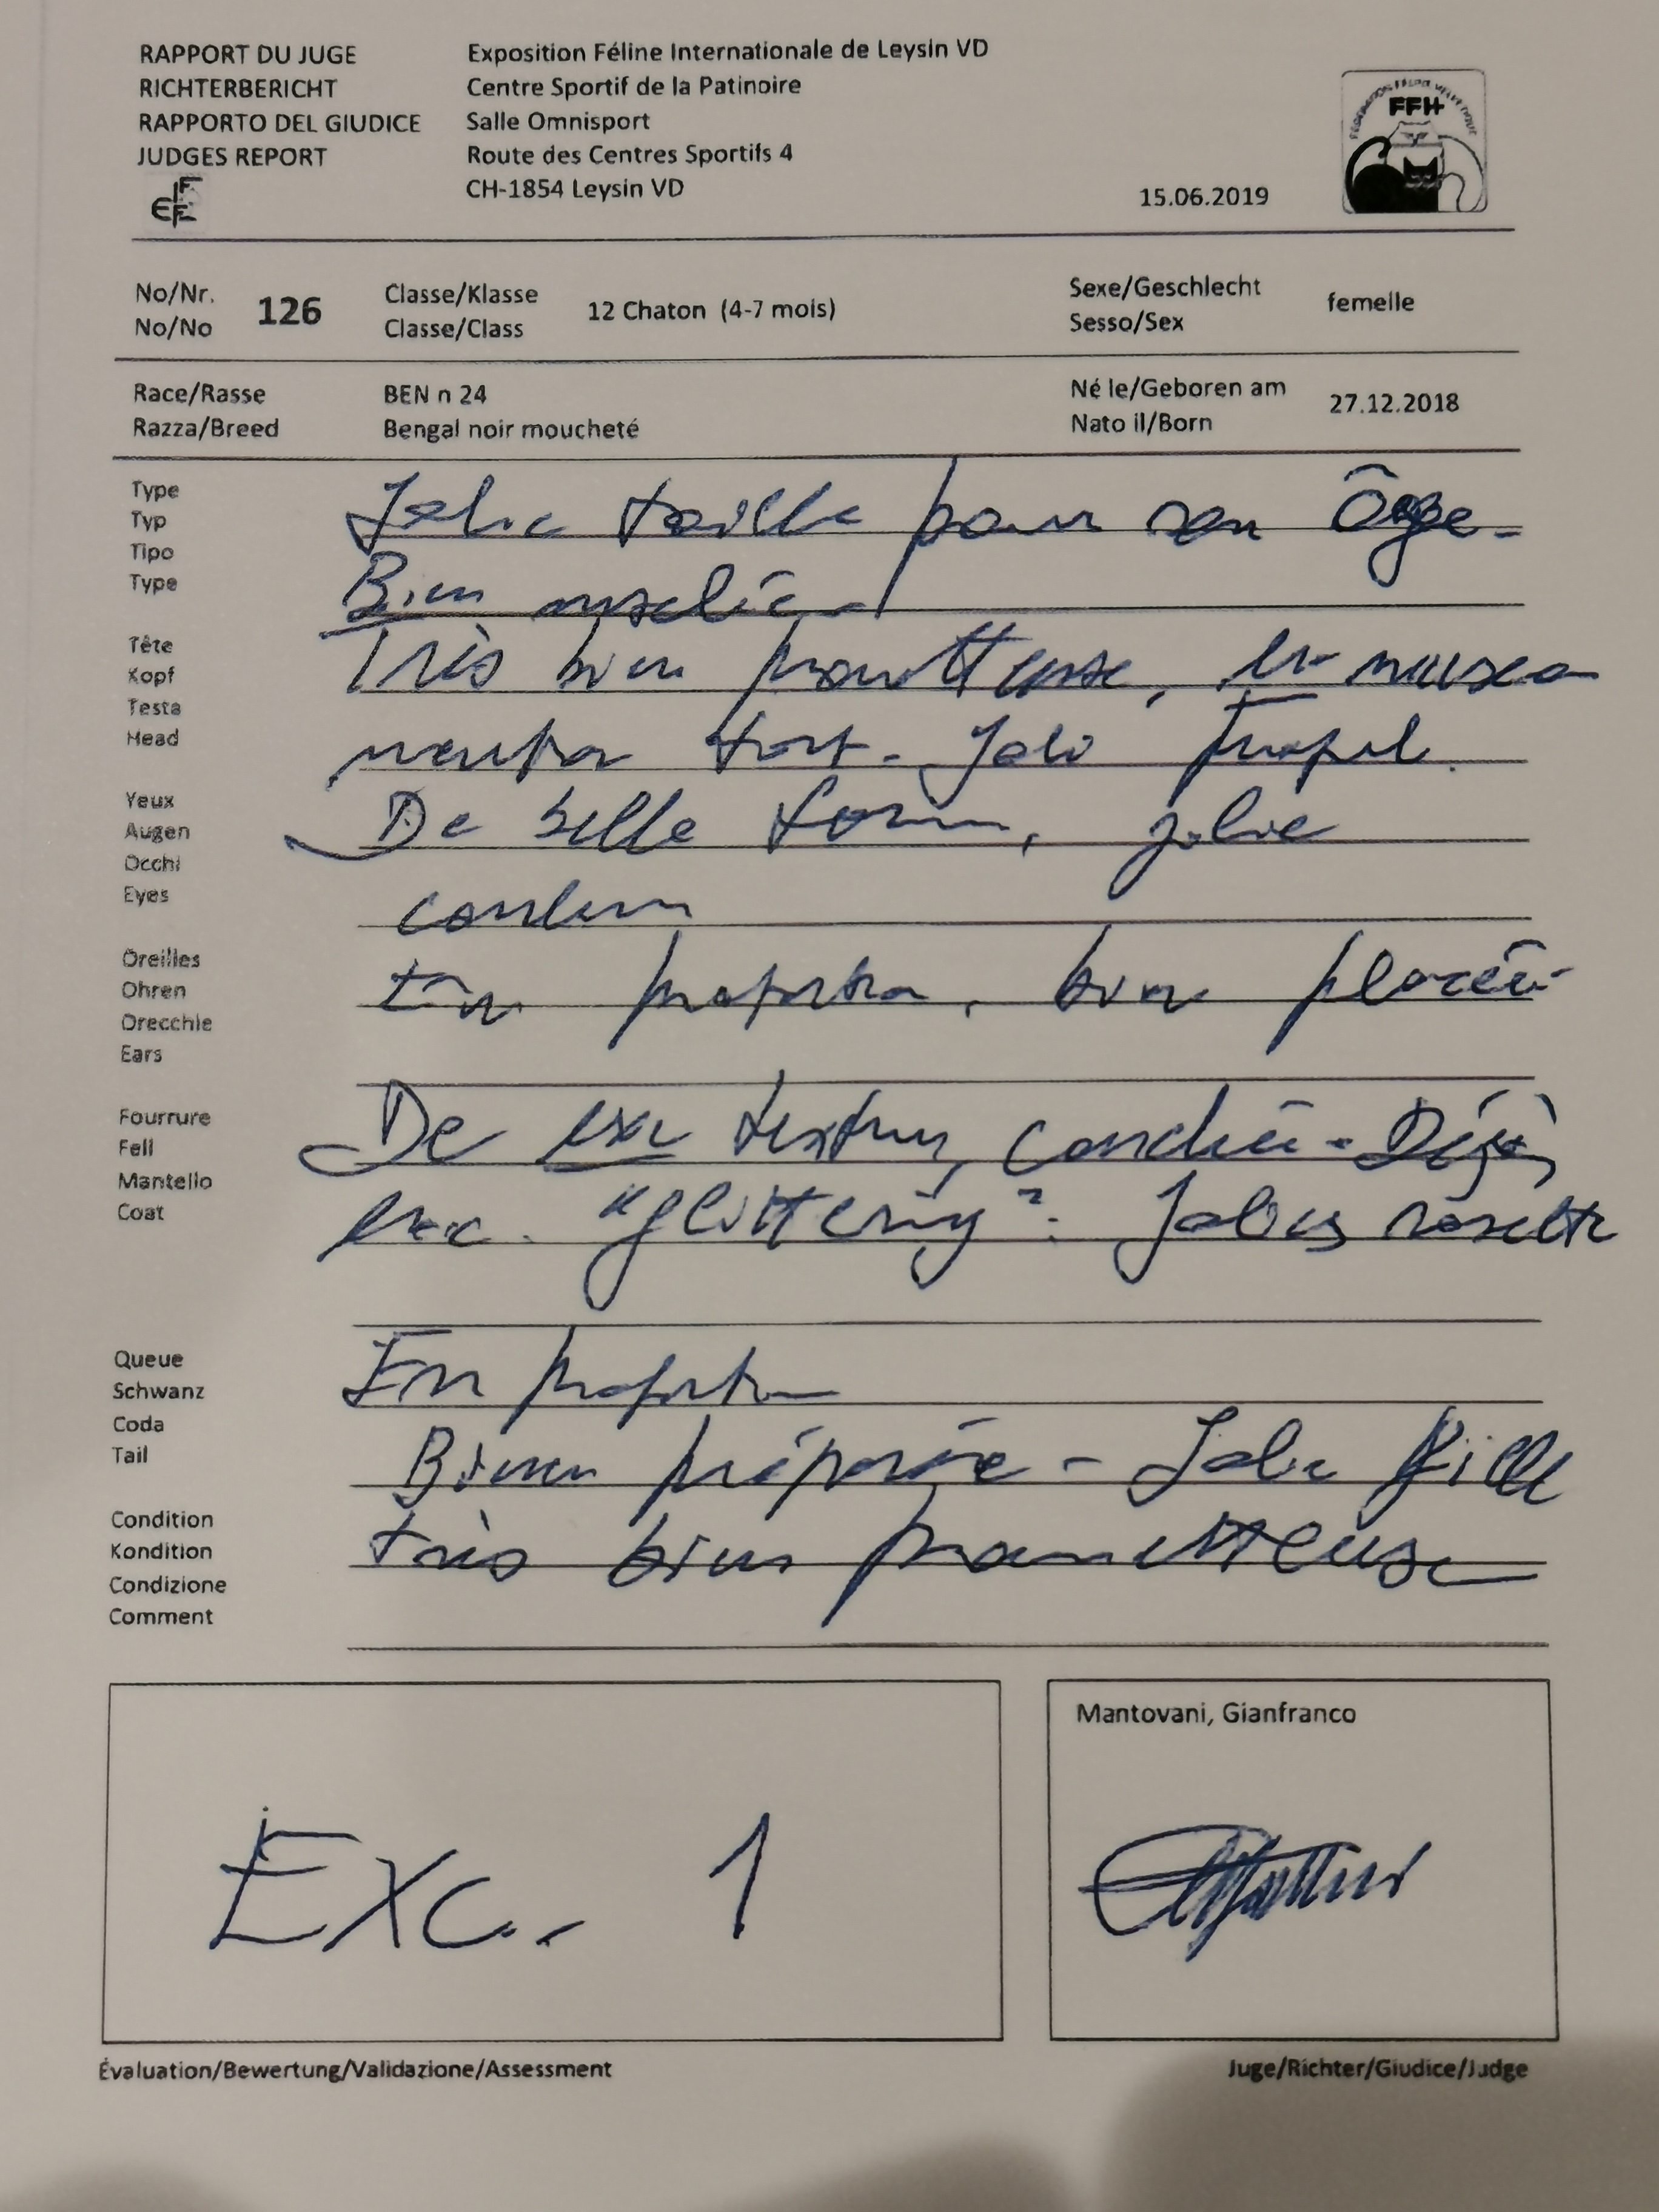 RAPPORT DU JUGE
RICHTERBERICHT
RAPPORTO DEL GIUDICE
JUDGES REPORT
Exposition Féline Internationale de Leysin VD
Centre Sportif de la Patinoire
Salle Omnisport
Route des Centres Sportifs 4
CH-1854 Leysin VD
15.06.2019
FFH
No/Nr. No/No 126
Classe/Klasse Classe/Class 12 Chaton (4-7 mois)
Sexe/Geschlecht Sesso/Sex femelle
Race/Rasse Razza/Breed
BEN n 24
Bengal noir moucheté
Né le/Geboren am Nato il/Born 27.12.2018
Type
Typ
Tipo
Type
Jolie taille pour son âge -
Bien musclée
Tête
Kopf
Testa
Head
Très bien prometteuse, museau
menton fort - Joli profil.
Yeux
Augen
Occhi
Eyes
De belle forme, jolie
couleur
Oreilles
Ohren
Orecchie
Ears
En proportion, bien placées
Fourrure
Fell
Mantello
Coat
De exc texture, couchée - Déjà
exc. "glittering". Jolies rosettes
Queue
Schwanz
Coda
Tail
En proportion
Condition
Kondition
Condizione
Comment
Bien préparée - Jolie fille
très bien prometteuse
EXC. 1
Mantovani, Gianfranco
Évaluation/Bewertung/Validazione/Assessment
Juge/Richter/Giudice/Judge